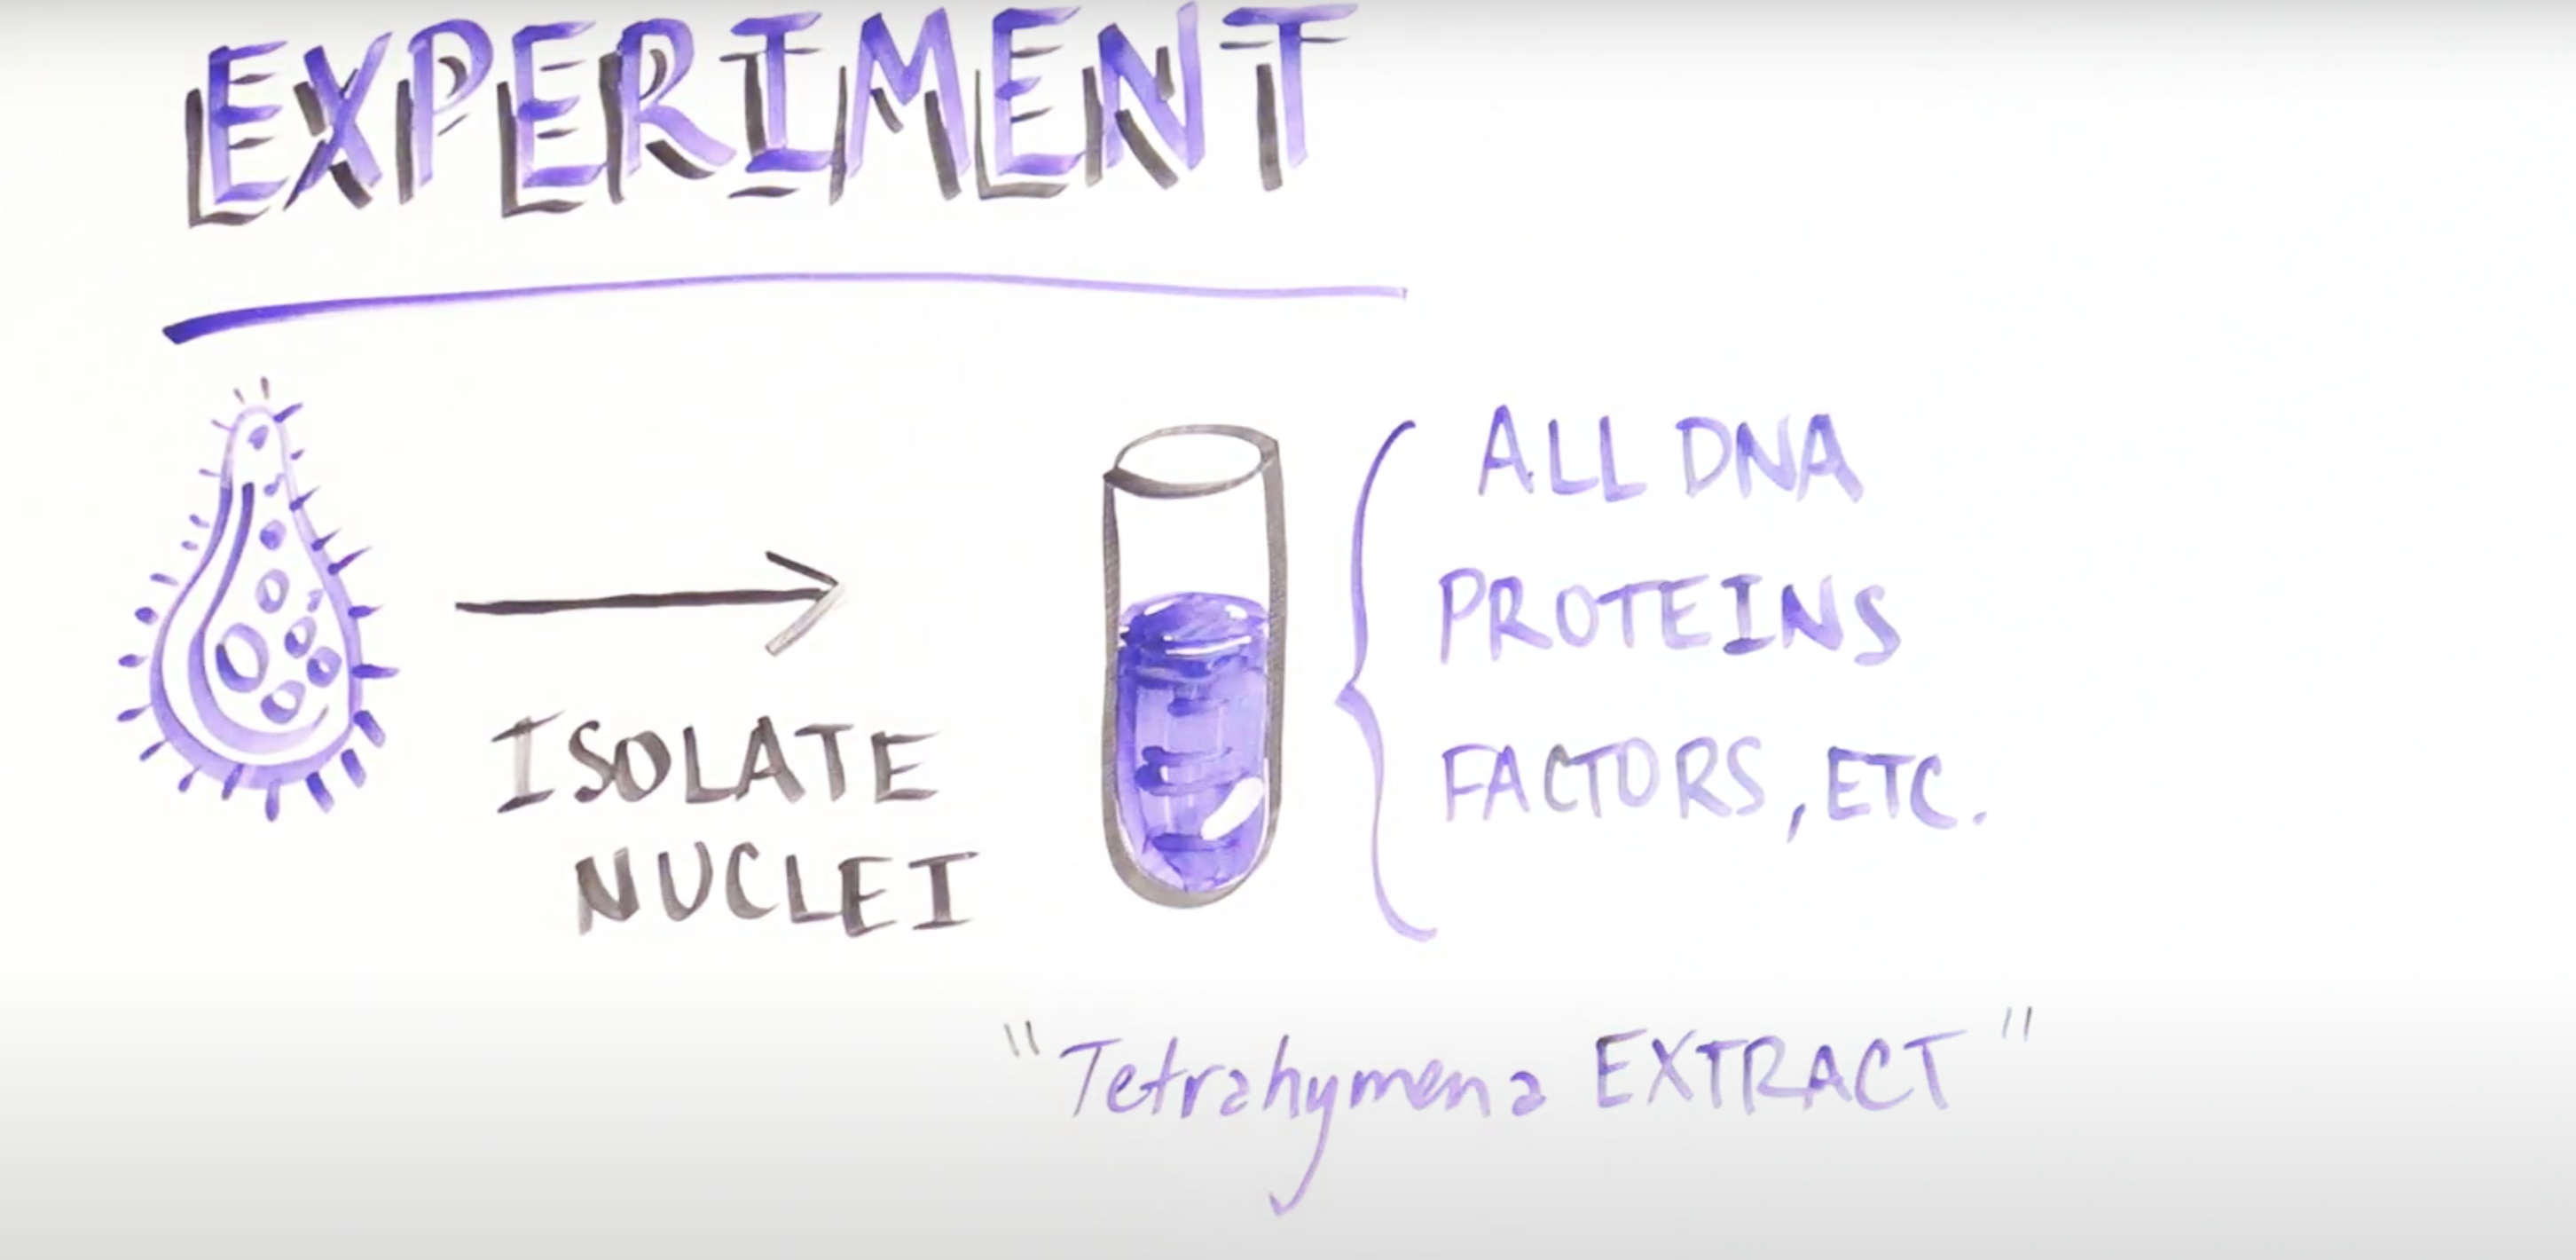 EXPERIMENT
ISOLATE
NUCLEI
ALL DNA
PROTEINS
FACTORS, ETC.
"Tetrahymena EXTRACT"